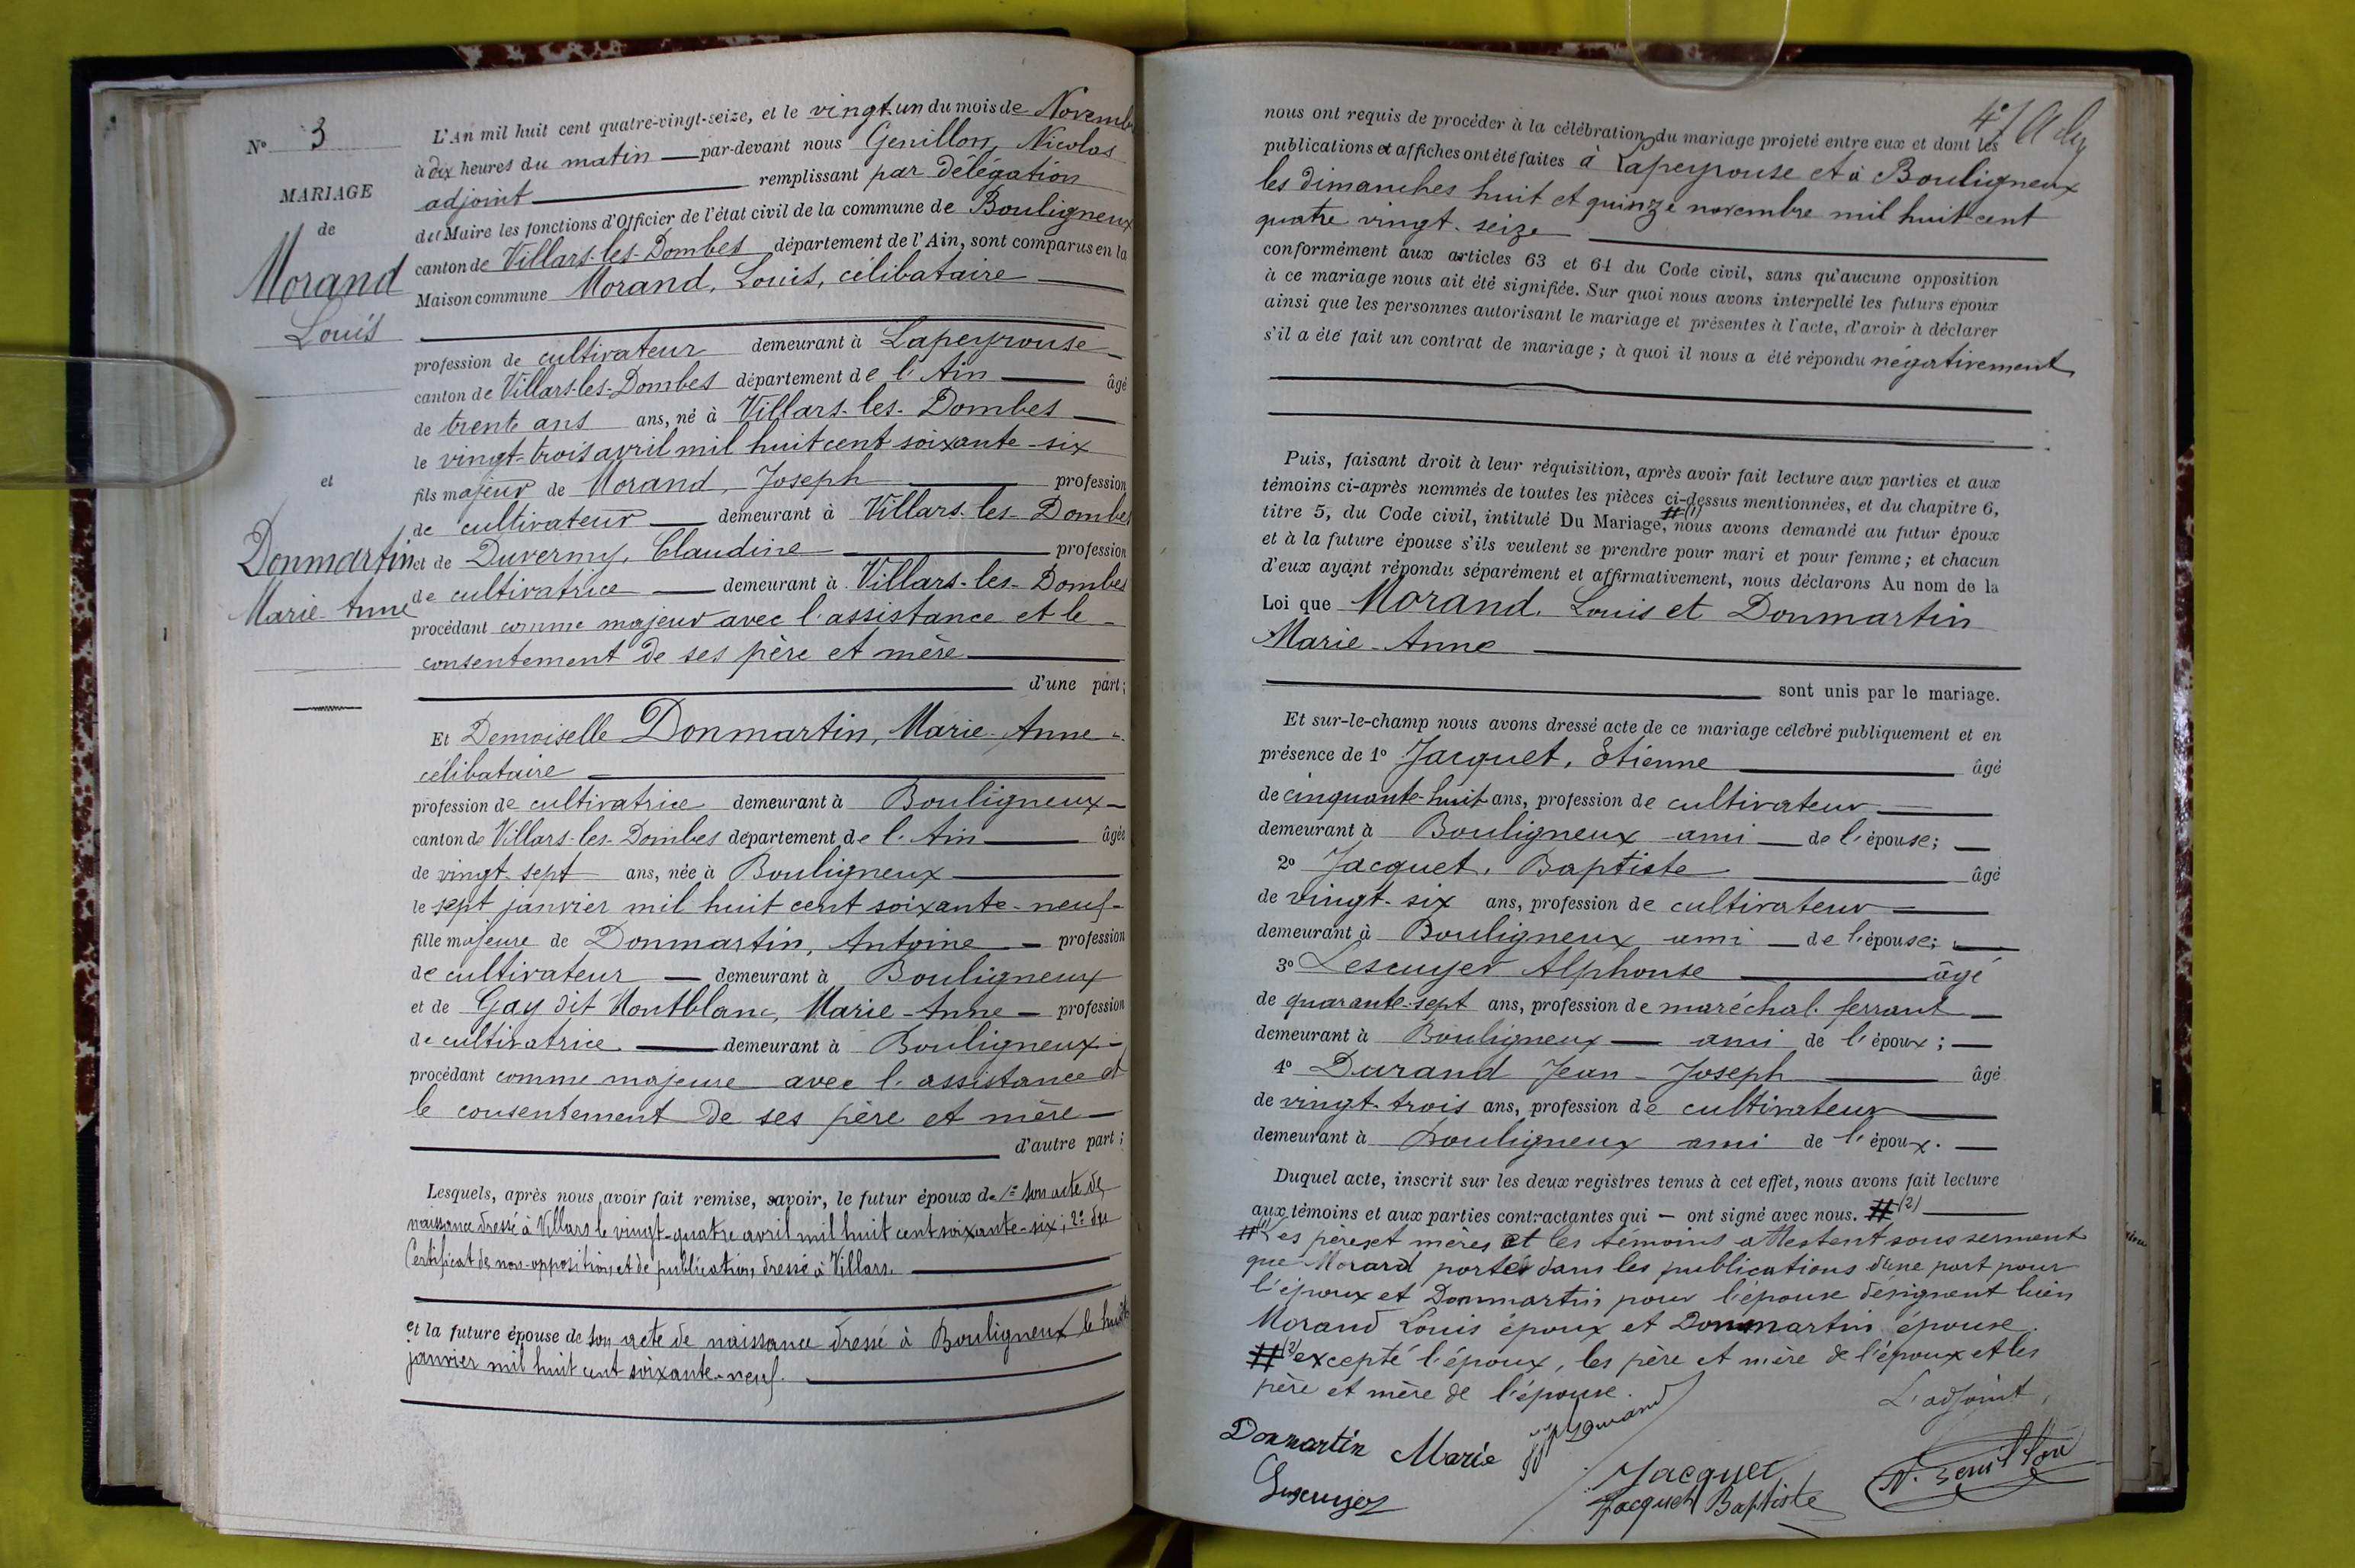 N° 3
MARIAGE
de
Morand
Louis
et
Donmartin
Marie-Anne
L'An mil huit cent quatre-vingt-seize, et le vingt-un du mois de Novembre
à dix heures du matin par-devant nous Genillon, Nicolas
adjoint remplissant par délégation
du Maire les fonctions d'Officier de l'état civil de la commune de Bouligneux
canton de Villars-les-Dombes département de l'Ain, sont comparus en la
Maison commune Morand, Louis, célibataire
profession de cultivateur demeurant à Lapeyrouse
canton de Villars-les-Dombes département de l'Ain âgé
de trente ans ans, né à Villars-les-Dombes
le vingt-trois avril mil huit cent soixante-six
fils majeur de Morand, Joseph profession
de cultivateur demeurant à Villars-les-Dombes
et de Duverny, Claudine profession
de cultivatrice demeurant à Villars-les-Dombes
procédant comme majeur avec l'assistance et le
consentement de ses père et mère
d'une part;
Et Demoiselle Donmartin, Marie-Anne
célibataire
profession de cultivatrice demeurant à Bouligneux
canton de Villars-les-Dombes département de l'Ain âgée
de vingt-sept ans, née à Bouligneux
le sept janvier mil huit cent soixante-neuf
fille majeure de Donmartin, Antoine profession
de cultivateur demeurant à Bouligneux
et de Gay dit Montblanc, Marie-Anne profession
de cultivatrice demeurant à Bouligneux
procédant comme majeure avec l'assistance et
le consentement de ses père et mère
d'autre part;
Lesquels, après nous avoir fait remise, savoir, le futur époux de 1° son acte de
naissance dressé à Villars le vingt-quatre avril mil huit cent soixante-six; 2° du
Certificat de non-opposition et de publication dressé à Villars.
et la future épouse de son acte de naissance dressé à Bouligneux le huit
janvier mil huit cent soixante-neuf.
nous ont requis de procéder à la célébration du mariage projeté entre eux et dont les
publications et affiches ont été faites à Lapeyrouse et à Bouligneux
les dimanches huit et quinze novembre mil huit cent
quatre vingt-seize
conformément aux articles 63 et 64 du Code civil, sans qu'aucune opposition
à ce mariage nous ait été signifiée. Sur quoi nous avons interpellé les futurs époux
ainsi que les personnes autorisant le mariage et présentes à l'acte, d'avoir à déclarer
s'il a été fait un contrat de mariage; à quoi il nous a été répondu négativement
Puis, faisant droit à leur réquisition, après avoir fait lecture aux parties et aux
témoins ci-après nommés de toutes les pièces ci-dessus mentionnées, et du chapitre 6,
titre 5, du Code civil, intitulé Du Mariage, #(1) nous avons demandé au futur époux
et à la future épouse s'ils veulent se prendre pour mari et pour femme; et chacun
d'eux ayant répondu séparément et affirmativement, nous déclarons Au nom de la
Loi que Morand, Louis et Donmartin
Marie-Anne
sont unis par le mariage.
Et sur-le-champ nous avons dressé acte de ce mariage célébré publiquement et en
présence de 1° Jacquet, Etienne âgé
de cinquante-huit ans, profession de cultivateur
demeurant à Bouligneux ami de l'épouse;
2° Jacquet, Baptiste âgé
de vingt-six ans, profession de cultivateur
demeurant à Bouligneux ami de l'épouse;
3° Lescuyer Alphonse âgé
de quarante-sept ans, profession de maréchal-ferrant
demeurant à Bouligneux ami de l'époux;
4° Durand Jean-Joseph âgé
de vingt-trois ans, profession de cultivateur
demeurant à Bouligneux ami de l'époux.
Duquel acte, inscrit sur les deux registres tenus à cet effet, nous avons fait lecture
aux témoins et aux parties contractantes qui ont signé avec nous. #(2)
#(1) Les pères et mères et les témoins attestent sous serment
que Morard portés dans les publications d'une part pour
l'époux et Dommartin pour l'épouse désignent bien
Morand Louis époux et Donmartin épouse.
#(2) excepté l'époux, les père et mère de l'époux et les
père et mère de l'épouse.
L'adjoint,
Donmartin Marie
JJ Durand
Lescuyer
Jacquet
Jacquet Baptiste
N. Genillon